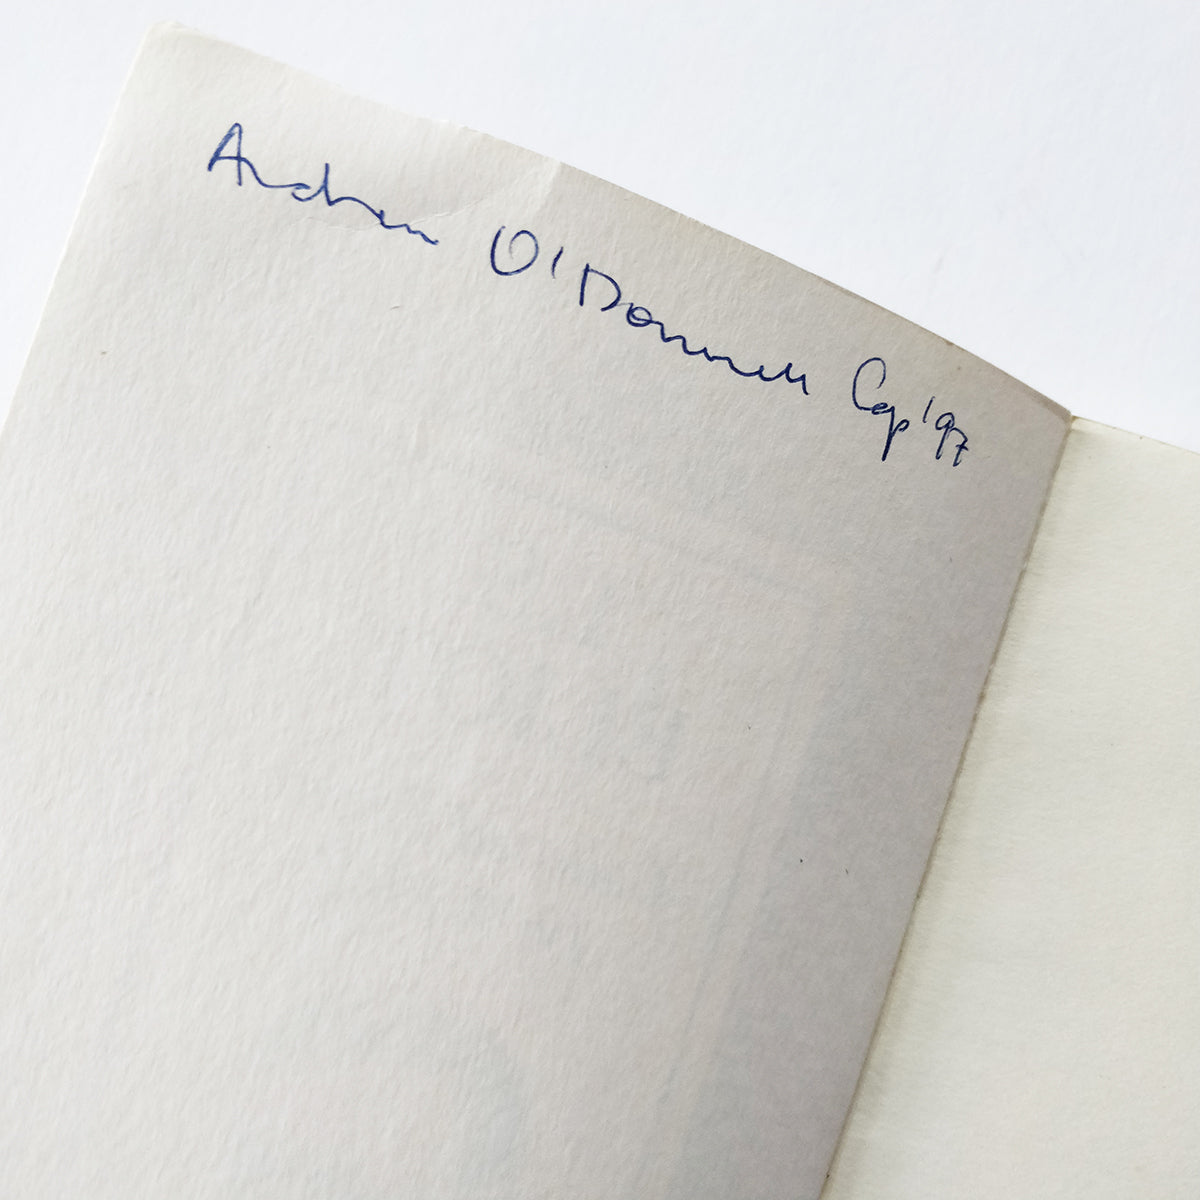 Andrew O'Donnell Cap '97